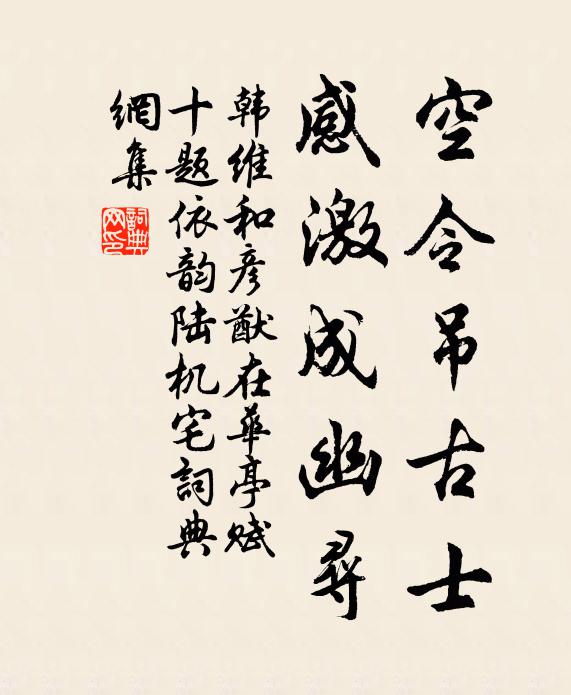 空令吊古士
感激成幽尋
韩維和彦猷在華亭赋
十题依韵陆机宅詞典
網集
詞典网印